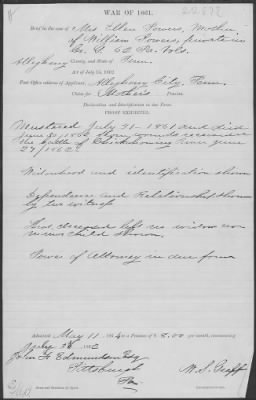 WAR OF 1861.
Brief in the case of Mrs Ellen Powers, Mother
of William Powers, private in
Co. G. 62 Pa. Vols.
Allegheny County, and State of Penn.
Act of July 14, 1862
Post Office address of Applicant, Allegheny City, Penn.
Claim for Mother's Pension.
Declaration and Identification in due Form.
PROOF EXHIBITED.
Mustered July 31 - 1861 and died
June 1862 from wounds received in
the battle of Chickahominy River June
27/1862.
Widowhood and identification shown
Dependence and Relationship shown
by two witness
That deceased left no widow nor
minor child shown.
Power of Attorney in due form
Admitted May 11 1864 to a Pension of $8.00 per month, commencing
1862
John H Edmundson Esq
Pittsburgh
Pa